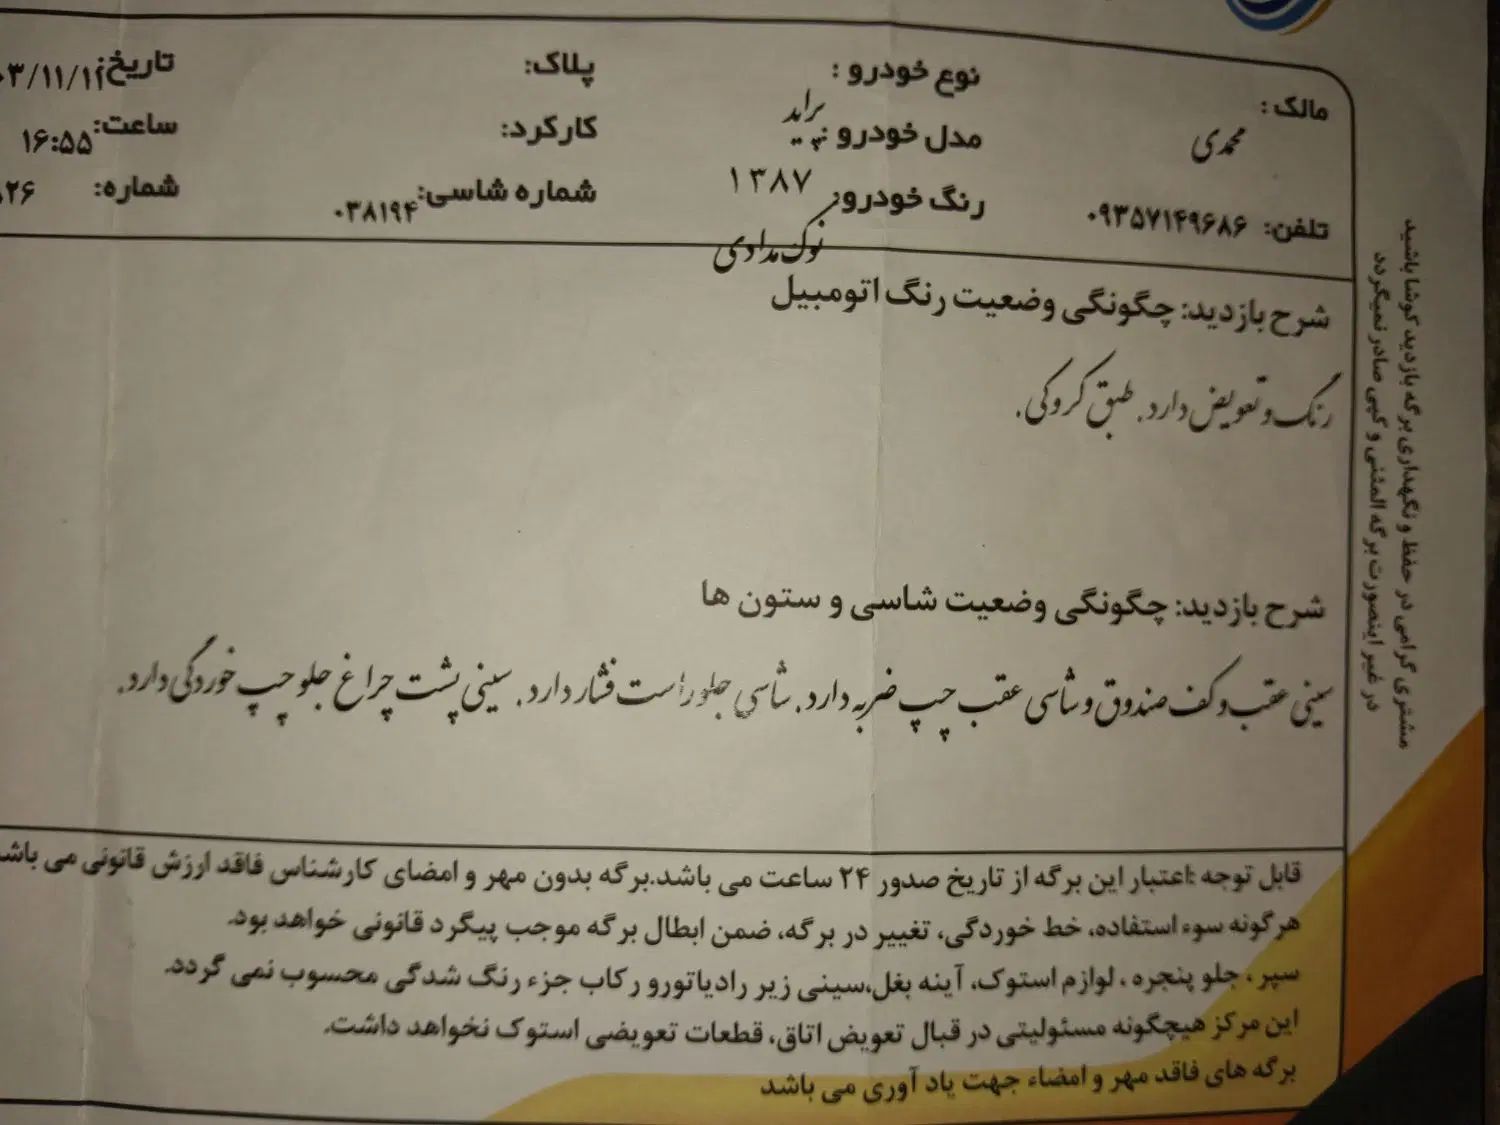 مالک:
محمدی
تلفن: ۰۹۳۵۷۱۴۹۶۸۶
نوع خودرو :
پراید
مدل خودرو :
۱۳۸۷
رنگ خودرو
نوک مدادی
پلاک:
کارکرد:
شماره شاسی: ۰۳۸۱۹۴
تاریخ:
ساعت: ۱۶:۵۵
شماره:
شرح بازدید: چگونگی وضعیت رنگ اتومبیل
رنگ و تعویض دارد. طبق کروکی.
شرح بازدید: چگونگی وضعیت شاسی و ستون ها
سینی عقب و کف صندوق و شاسی عقب چپ ضربه دارد. شاسی جلو راست فشار دارد. سینی پشت چراغ جلو چپ خوردگی دارد.
قابل توجه :اعتبار این برگه از تاریخ صدور ۲۴ ساعت می باشد.برگه بدون مهر و امضای کارشناس فاقد ارزش قانونی می باشد
هرگونه سوء استفاده، خط خوردگی، تغییر در برگه، ضمن ابطال برگه موجب پیگرد قانونی خواهد بود.
سپر ، جلو پنجره ، لوازم استوک، آینه بغل،سینی زیر رادیاتورو رکاب جزء رنگ شدگی محسوب نمی گردد.
این مرکز هیچگونه مسئولیتی در قبال تعویض اتاق، قطعات تعویضی استوک نخواهد داشت.
برگه های فاقد مهر و امضاء جهت یاد آوری می باشد
مشتری گرامی در حفظ و نگهداری برگه بازدید کوشا باشید
در غیر اینصورت برگه المثنی و کپی صادر نمیگردد